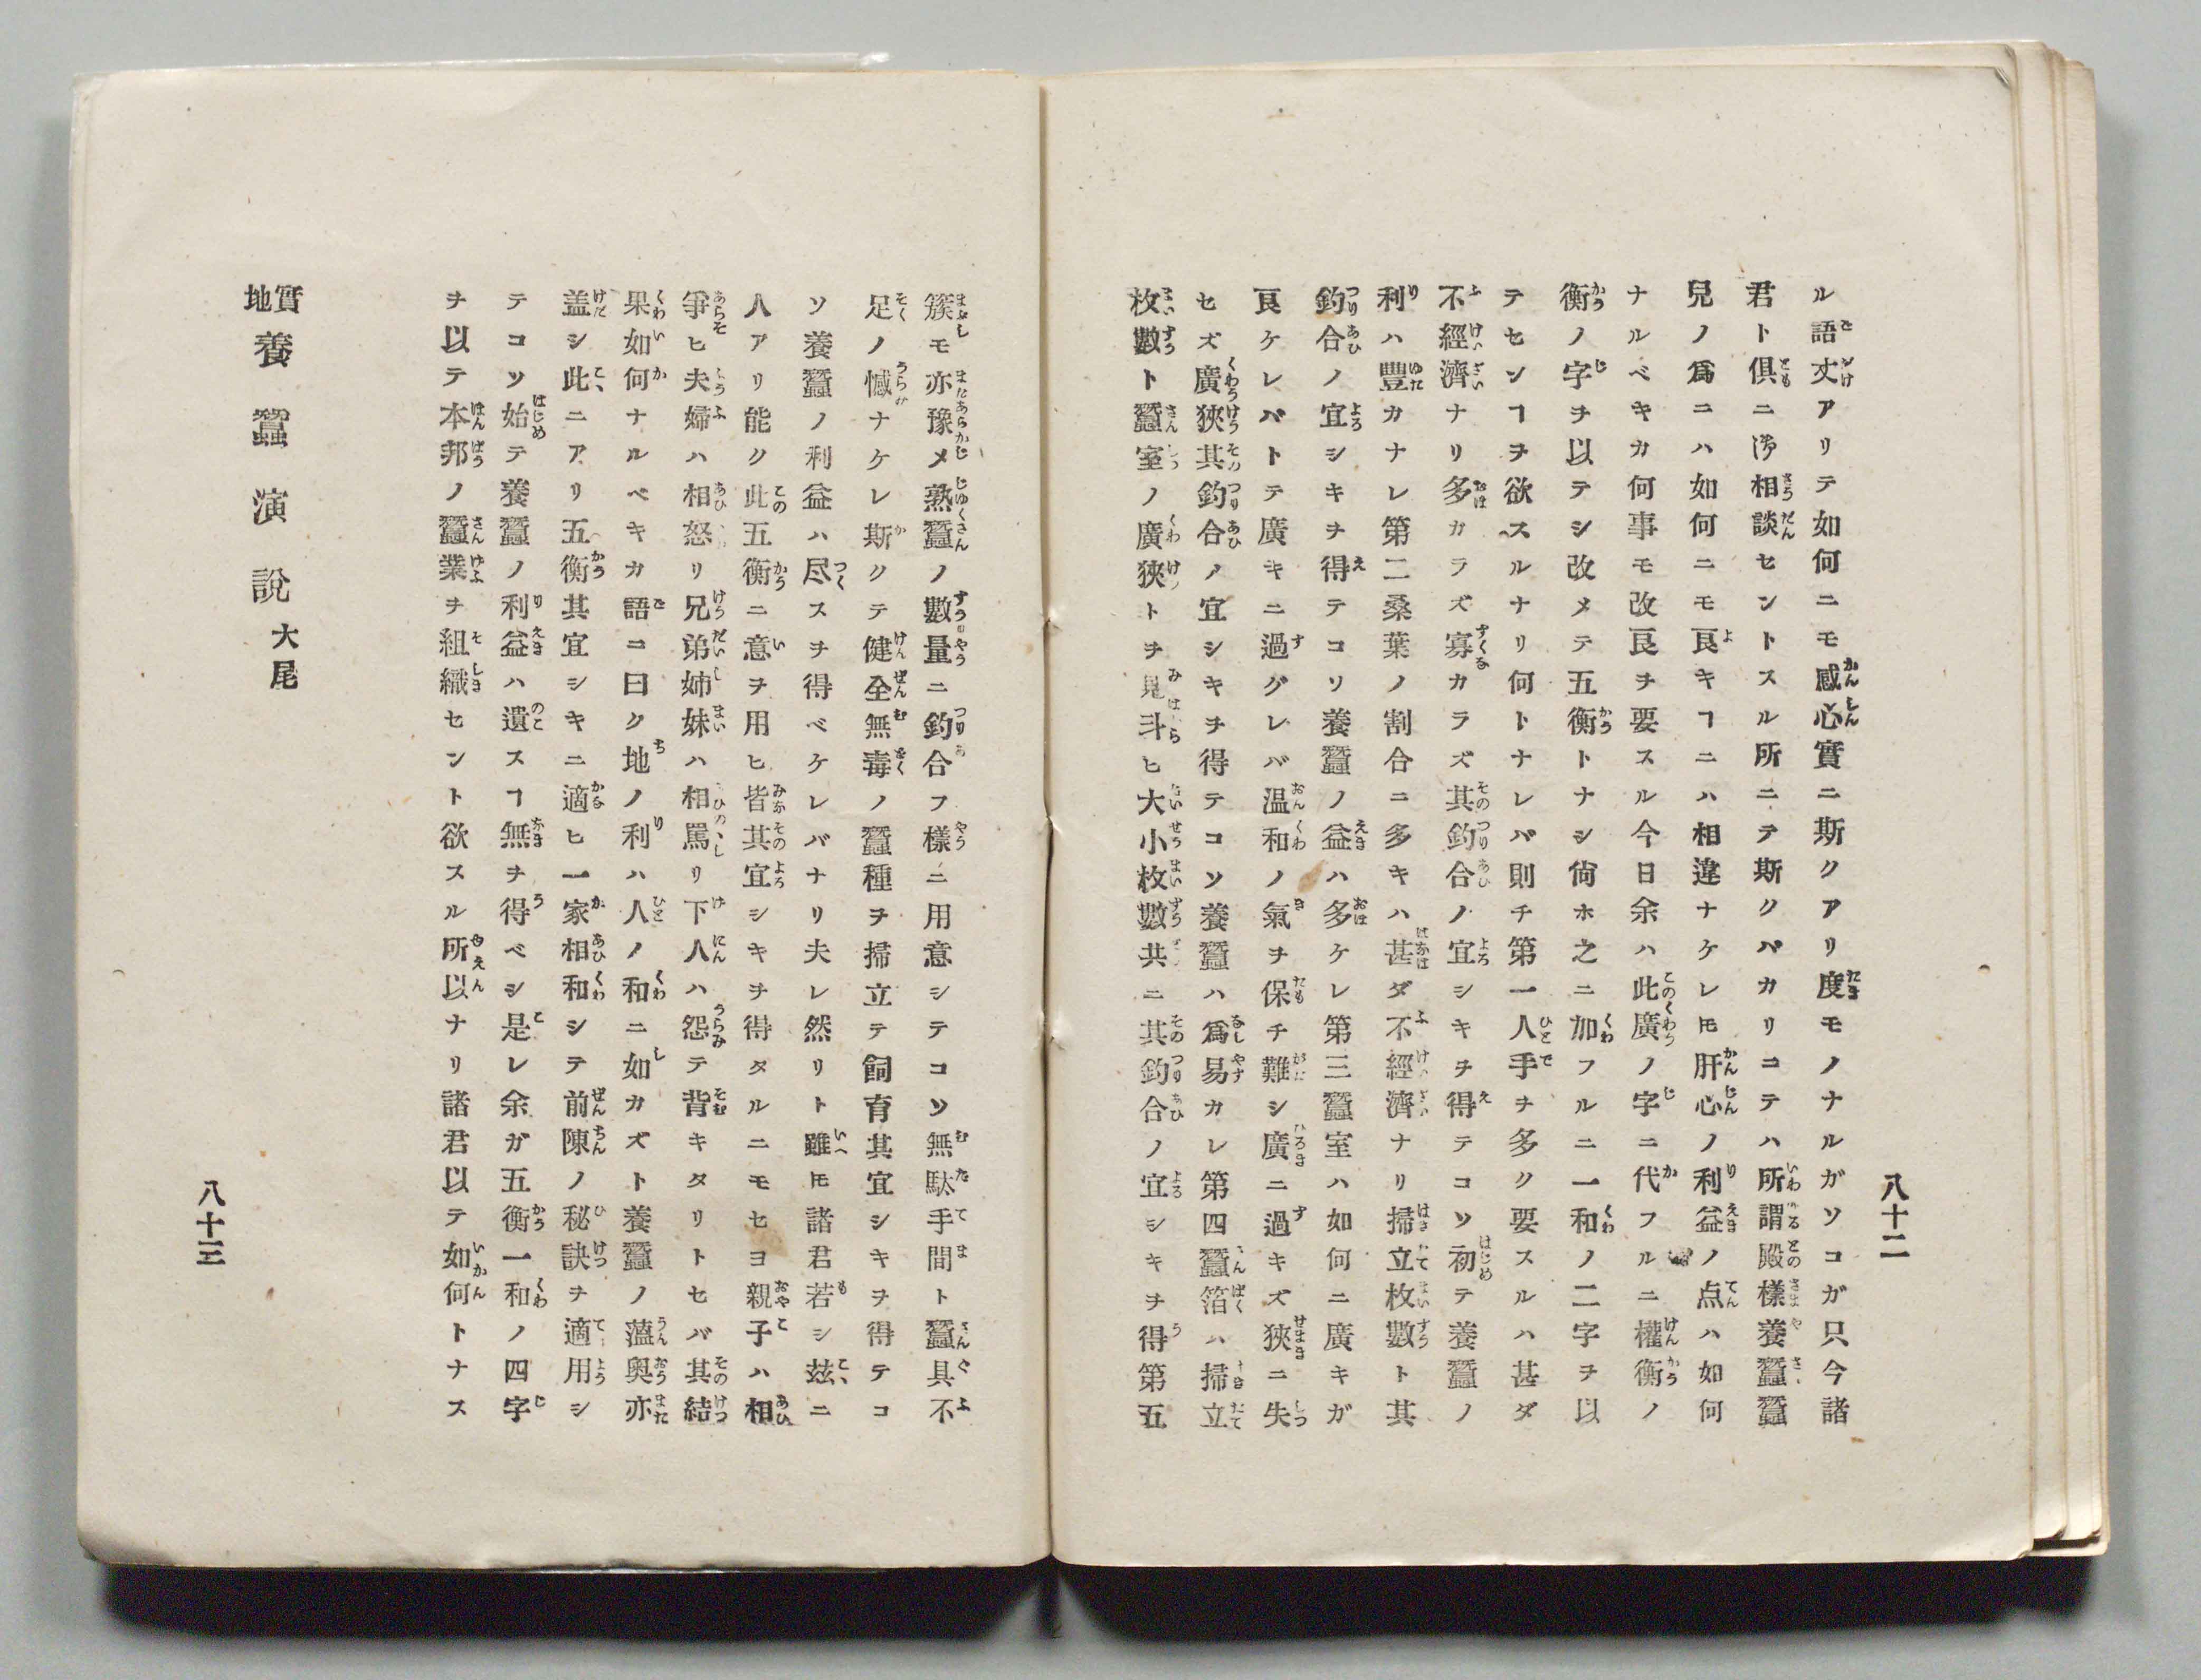 八十二
ル語丈アリテ如何ニモ感心實ニ斯クアリ度モノナルガソコガ只今諸
君ト倶ニ御相談セントスル所ニテ斯クバカリコテハ所謂殿樣養蠶蠶
兒ノ爲ニハ如何ニモ良キヿニハ相違ナケレ𪜈肝心ノ利益ノ点ハ如何
ナルベキカ何事モ改良ヲ要スル今日余ハ此廣ノ字ニ代フルニ權衡ノ
衡ノ字ヲ以テシ改メテ五衡トナシ尙ホ之ニ加フルニ一和ノ二字ヲ以
テセンヿヲ欲スルナリ何トナレバ則チ第一人手ヲ多ク要スルハ甚ダ
不經濟ナリ多カラズ寡カラズ其釣合ノ宜シキヲ得テコソ初テ養蠶ノ
利ハ豐カナレ第二桑葉ノ割合ニ多キハ甚ダ不經濟ナリ掃立枚數ト其
釣合ノ宜シキヲ得テコソ養蠶ノ益ハ多ケレ第三蠶室ハ如何ニ廣キガ
良ケレバトテ廣キニ過グレバ温和ノ氣ヲ保チ難シ廣ニ過キズ狹ニ失
セズ廣狹其釣合ノ宜シキヲ得テコソ養蠶ハ爲易カレ第四蠶箔ハ掃立
枚數ト蠶室ノ廣狹トヲ見斗ヒ大小枚數共ニ其釣合ノ宜シキヲ得第五
簇モ亦豫メ熟蠶ノ數量ニ釣合フ樣ニ用意シテコソ無駄手間ト蠶具不
足ノ憾ナケレ斯クテ健全無毒ノ蠶種ヲ掃立テ飼育其宜シキヲ得テコ
ソ養蠶ノ利益ハ尽スヲ得ベケレバナリ夫レ然リト雖𪜈諸君若シ玆ニ
人アリ能ク此五衡ニ意ヲ用ヒ皆其宜シキヲ得タルニモセヨ親子ハ相
爭ヒ夫婦ハ相怒リ兄弟姉妹ハ相罵リ下人ハ怨テ背キタリトセバ其結
果如何ナルベキカ語ニ曰ク地ノ利ハ人ノ和ニ如カズト養蠶ノ薀奥亦
盖シ此ニアリ五衡其宜シキニ適ヒ一家相和シテ前陳ノ秘訣ヲ適用シ
テコソ始テ養蠶ノ利益ハ遺スヿ無ヲ得ベシ是レ余ガ五衡一和ノ四字
ヲ以テ本邦ノ蠶業ヲ組織セント欲スル所以ナリ諸君以テ如何トナス
實地養蠶演說大尾
八十三